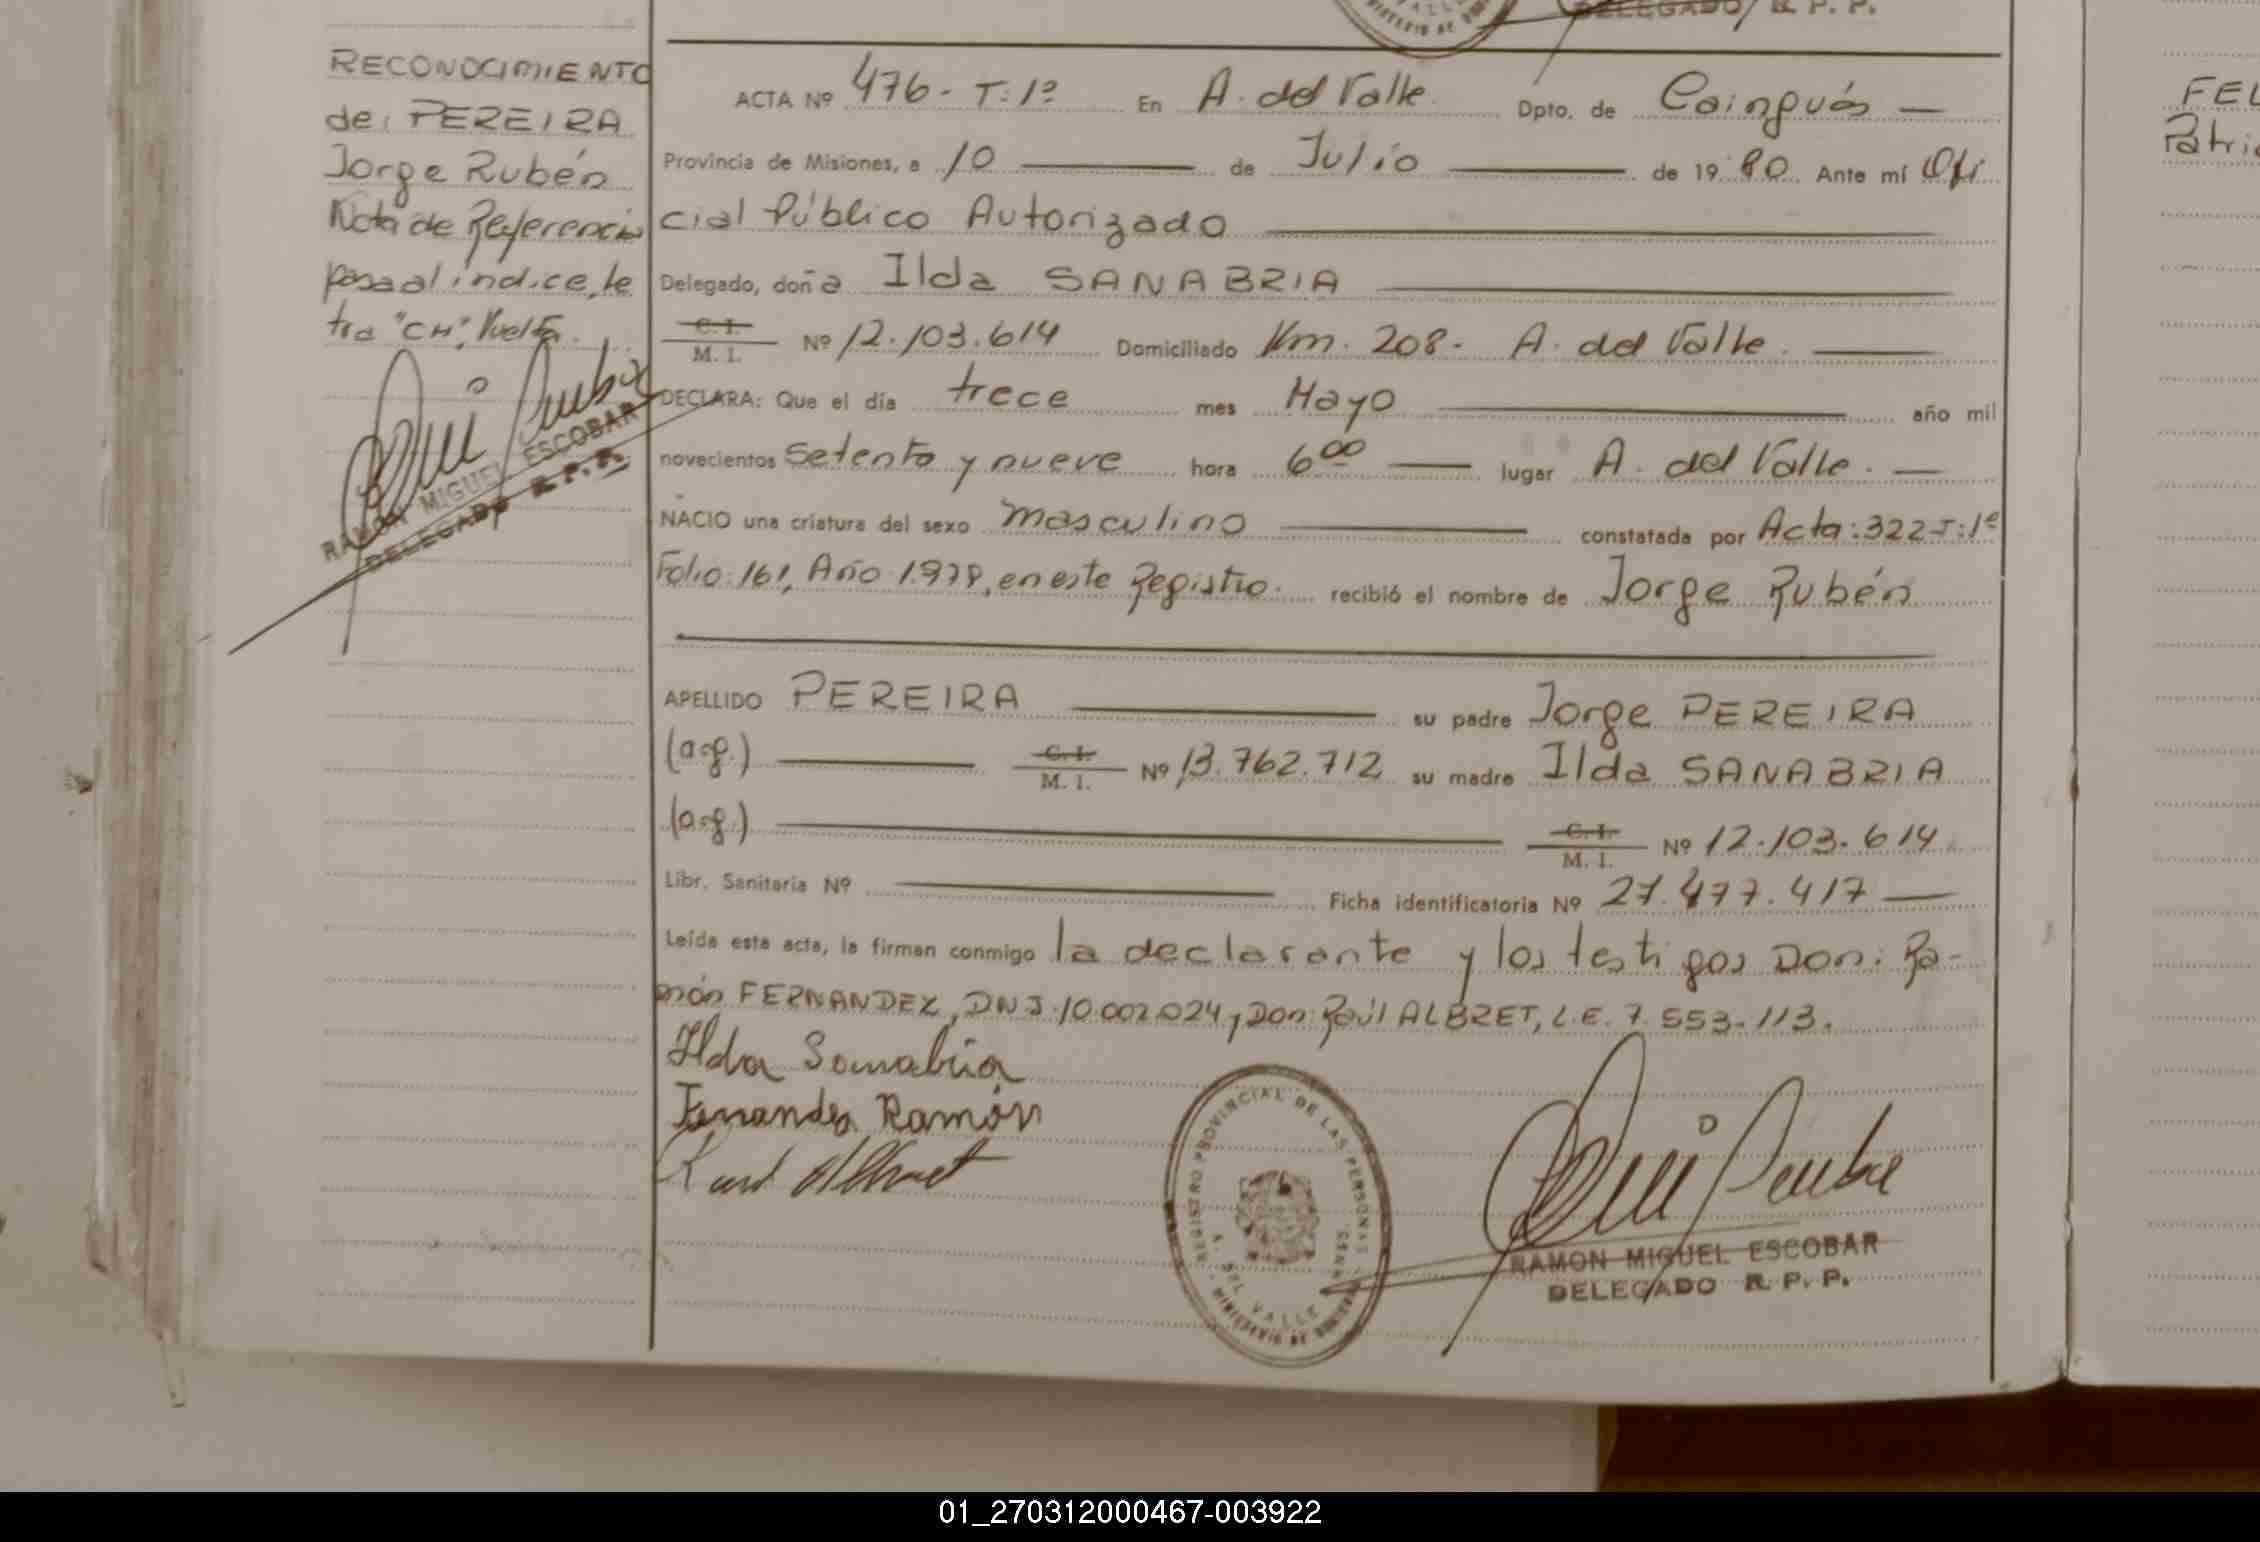 DELEGADO R. P. P.
RECONOCIMIENTO
de: PEREIRA
Jorge Rubén
Nota de Referencia
pasa al índice, le
tra "CH", Vuelta.
RAMON MIGUEL ESCOBAR
DELEGADO R. P. P.
ACTA Nº 476- T: 1º En A. del Valle Dpto. de Cainguás —
Provincia de Misiones, a 10 — de Julio — de 19 80 Ante mí Ofi
cial Público Autorizado —
Delegado, doña Ilda SANABRIA —
C. I. / M. I. Nº 12.103.614 Domiciliado Km. 208- A. del Valle. —
DECLARA: Que el día trece mes Mayo — año mil
novecientos setenta y nueve hora 6 00 — lugar A. del Valle. —
NACIO una criatura del sexo masculino — constatada por Acta: 322 T: 1º
Folio: 161, Año 1.979, en este Registro. recibió el nombre de Jorge Rubén
APELLIDO PEREIRA — su padre Jorge PEREIRA
(arg.) — C. I. / M. I. Nº 13.762.712 su madre Ilda SANABRIA
(arg.) — C. I. / M. I. Nº 12.103.614
Libr. Sanitaria Nº — Ficha identificatoria Nº 27.477.417 —
Leída esta acta, la firman conmigo la declarante y los testigos Don: Ra-
món FERNANDEZ, DNI 10.002.024, y Don: Raúl ALBRET, L.E. 7.553.113.
Ilda Sanabria
Fernandez Ramón
REGISTRO PROVINCIAL DE LAS PERSONAS
A. DEL VALLE
MINISTERIO DE GOBIERNO
RAMON MIGUEL ESCOBAR
DELEGADO R. P. P.
FEL
Patri
01_270312000467-003922